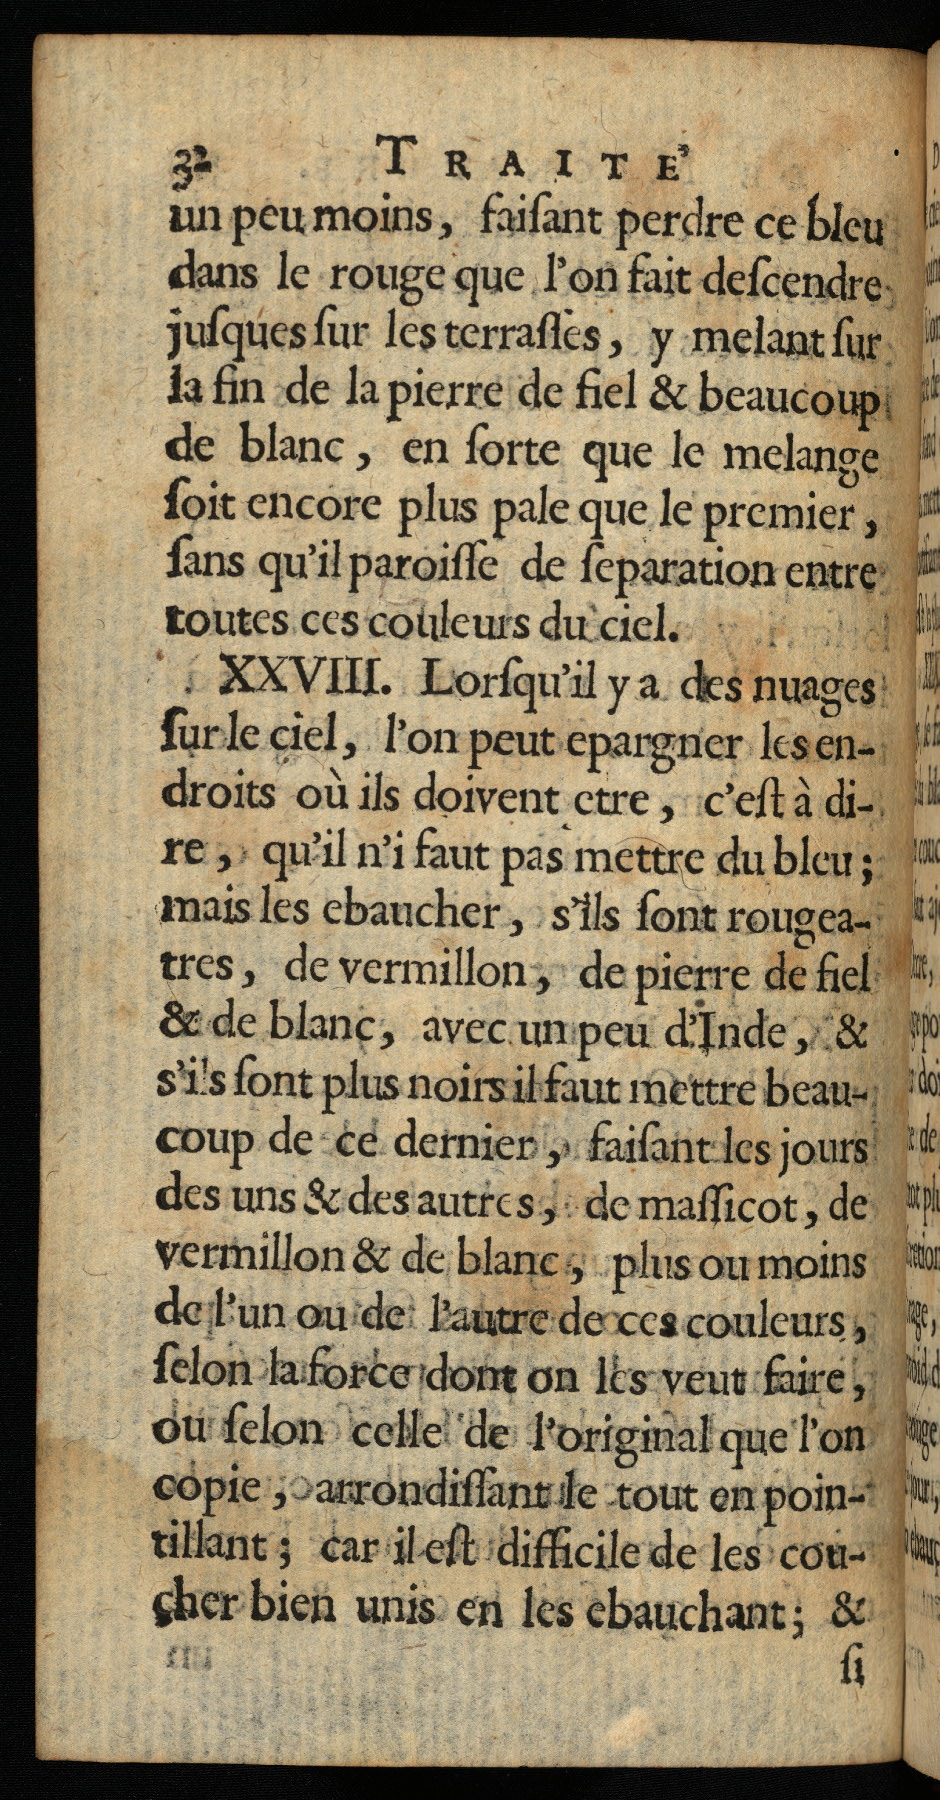 32 TRAITE'
un peu moins, faiſant perdre ce bleu
dans le rouge que l'on fait deſcendre
juſques ſur les terraſſes, y melant ſur
la fin de la pierre de fiel & beaucoup
de blanc, en ſorte que le melange
ſoit encore plus pale que le premier,
ſans qu'il paroiſſe de ſeparation entre
toutes ces couleurs du ciel.
XXVIII. Lorſqu'il y a des nuages
ſur le ciel, l'on peut epargner les en-
droits où ils doivent etre, c'eſt à di-
re, qu'il n'i faut pas mettre du bleu;
mais les ebaucher, s'ils ſont rougea-
tres, de vermillon, de pierre de fiel
& de blanc, avec un peu d'Inde, &
s'ils ſont plus noirs il faut mettre beau-
coup de ce dernier, faiſant les jours
des uns & des autres, de maſſicot, de
vermillon & de blanc, plus ou moins
de l'un ou de l'autre de ces couleurs,
ſelon la force dont on les veut faire,
ou ſelon celle de l'original que l'on
copie, arrondiſſant le tout en poin-
tillant; car il eſt difficile de les cou-
cher bien unis en les ebauchant; &
ſi